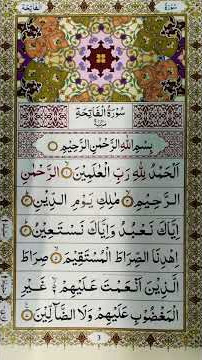 اَلْفَاتِحَة
سُوْرَةُ
سُوْرَةُ الْفَاتِحَةِ
بِسْمِ اللّٰهِ الرَّحْمٰنِ الرَّحِيْمِ
اَلْحَمْدُ لِلّٰهِ رَبِّ الْعٰلَمِيْنَ الرَّحْمٰنِ
الرَّحِيْمِ مٰلِكِ يَوْمِ الدِّيْنِ
اِيَّاكَ نَعْبُدُ وَاِيَّاكَ نَسْتَعِيْنُ
اِهْدِنَا الصِّرَاطَ الْمُسْتَقِيْمَ صِرَاطَ
الَّذِيْنَ اَنْعَمْتَ عَلَيْهِمْ غَيْرِ
الْمَغْضُوْبِ عَلَيْهِمْ وَلَا الضَّآلِّيْنَ
3